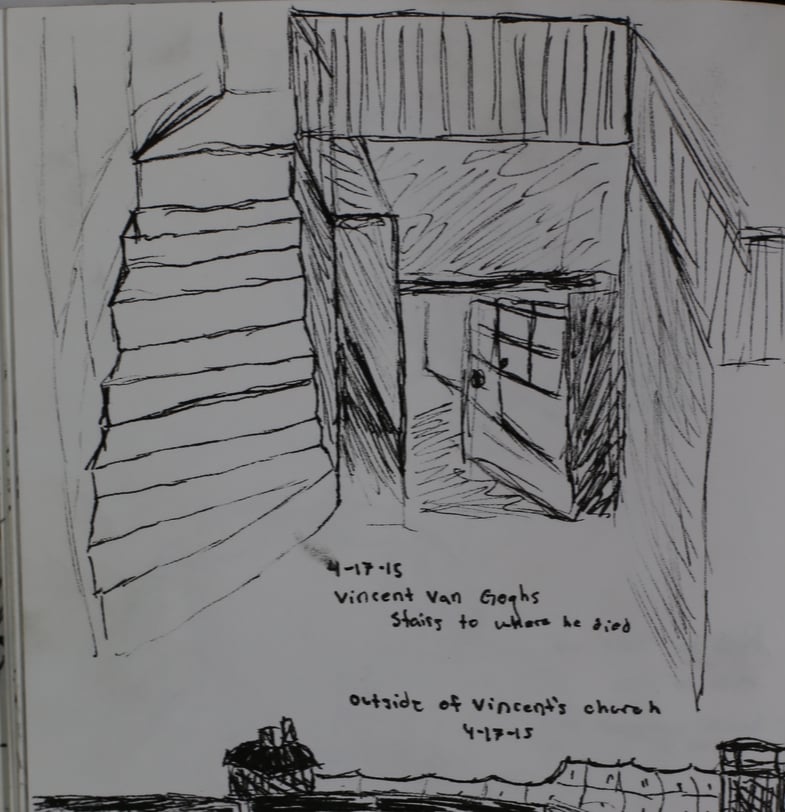 4-17-15
Vincent Van Goghs
Stairs to where he died
outside of Vincent's church
4-17-15